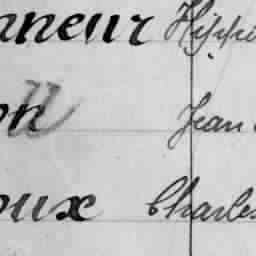 nneur Hippo
on Jean
oux Charles